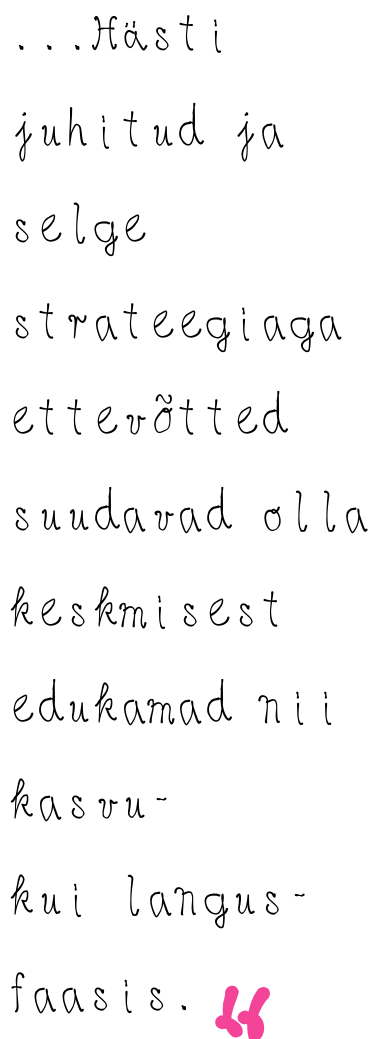 ...Hästi
juhitud ja
selge
strateegiaga
ettevõtted
suudavad olla
keskmisest
edukamad nii
kasvu-
kui langus-
faasis. “